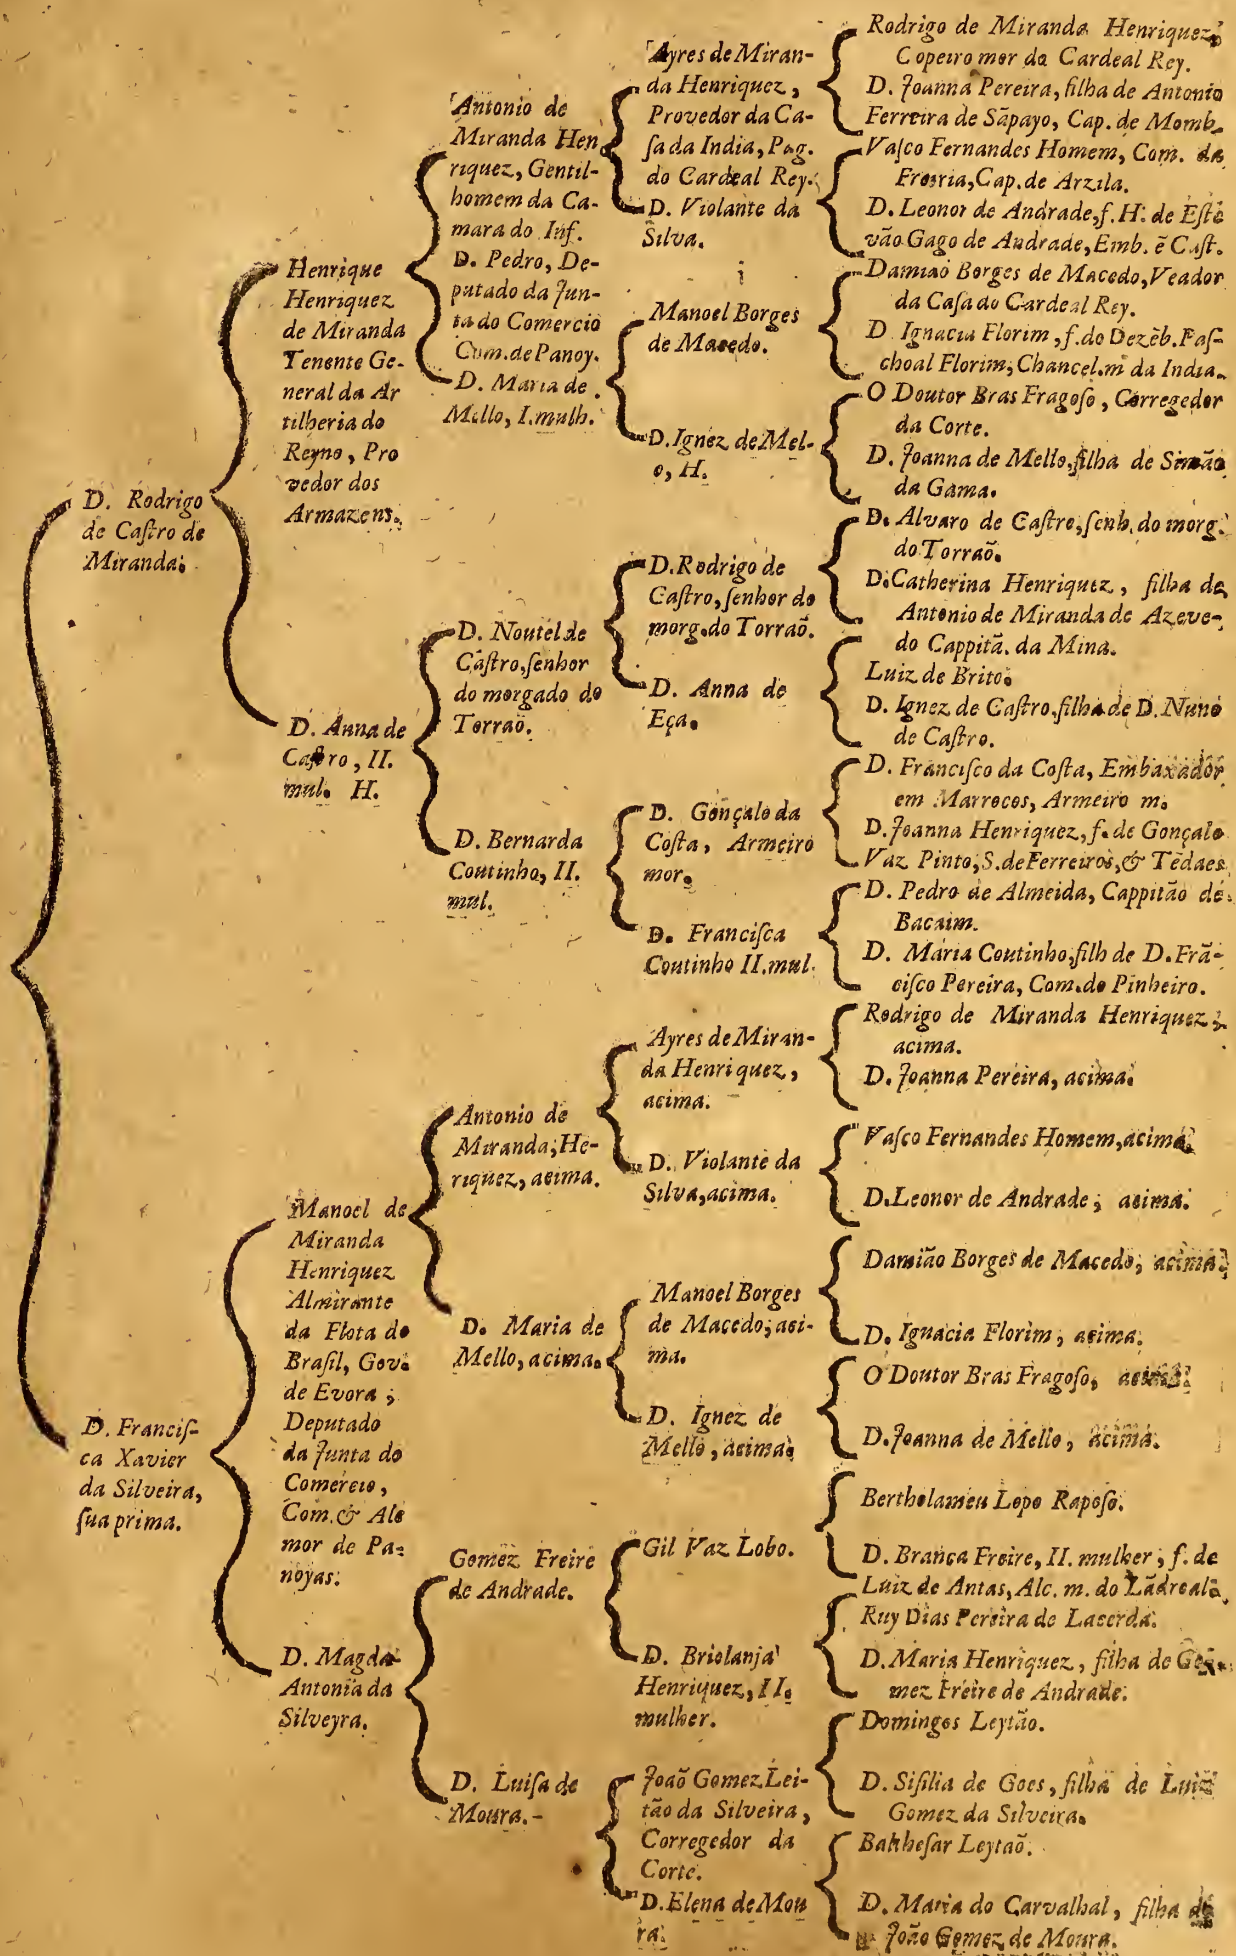 D. Rodrigo
de Caſtro de
Miranda.
D. Franciſ-
ca Xavier
da Silveira,
ſua prima.
Henrique
Henriquez
de Miranda
Tenente Ge-
neral da Ar
tilheria do
Reyno, Pro
vedor dos
Armazens.
D. Anna de
Caſtro, II.
mul. H.
Manoel de
Miranda
Henriquez
Almirante
da Flota do
Braſil, Gov.
de Evora,
Deputado
da Junta do
Comercio,
Com. & Alc
mor de Pa-
noyas.
D. Magda
Antonia da
Silveyra.
Antonio de
Miranda Hen
riquez, Gentil-
homem da Ca-
mara do Inf.
D. Pedro, De-
putado da Jun-
ta do Comercio
Com. de Panoy.
D. Maria de
Mello, I. mulh.
D. Noutel de
Caſtro, ſenhor
do morgado do
Torraõ.
D. Bernarda
Coutinho, II.
mul.
Antonio de
Miranda, He-
riquez, acima.
D. Maria de
Mello, acima.
Gomez Freire
de Andrade.
D. Luiſa de
Moura.-
Ayres de Miran-
da Henriquez,
Provedor da Ca-
ſa da India, Pag.
do Cardeal Rey.
D. Violante da
Silva.
Manoel Borges
de Macedo.
D. Ignez de Mel-
o, H.
D. Rodrigo de
Caſtro, ſenhor do
morg. do Torraõ.
D. Anna de
Eça.
D. Gonçalo da
Coſta, Armeiro
mor.
D. Franciſca
Coutinho II. mul.
Ayres de Miran-
da Henriquez,
acima.
D. Violante da
Silva, acima.
Manoel Borges
de Macedo, aci-
ma.
D. Ignez de
Mello, acima.
Gil Vaz Lobo.
D. Briolanja
Henriquez, II.
mulher.
Joaõ Gomez Lei-
tão da Silveira,
Corregedor da
Corte.
D. Elena de Mou
ra.
Rodrigo de Miranda Henriquez,
Copeiro mor do Cardeal Rey.
D. Joanna Pereira, filha de Antonio
Ferreira de Sãpayo, Cap. de Momb.
Vaſco Fernandes Homem, Com. da
Freiria, Cap. de Arzila.
D. Leonor de Andrade, f. H. de Eſtê
vão Gago de Andrade, Emb. ẽ Caſt.
Damiaõ Borges de Macedo, Veador
da Caſa do Cardeal Rey.
D Ignacia Florim, f. do Dezẽb. Paſ-
choal Florim, Chancel. m da India.
O Doutor Bras Fragoſo, Corregedor
da Corte.
D. Joanna de Mello, filha de Simão
da Gama.
D. Alvaro de Caſtro, ſenh. do morg.
do Torraõ.
D. Catherina Henriquez, filha de
Antonio de Miranda de Azeve-
do Cappitã. da Mina.
Luiz de Brito.
D. Ignez de Caſtro, filha de D. Nuno
de Caſtro.
D. Franciſco da Coſta, Embaxador
em Marrocos, Armeiro m.
D. Joanna Henriquez, f. de Gonçalo
Vaz Pinto, S. de Ferreiros, & Tẽdaes
D. Pedro de Almeida, Cappitão de
Bacaim.
D. Maria Coutinho, filh de D. Frã-
ciſco Pereira, Com. do Pinheiro.
Rodrigo de Miranda Henriquez,
acima.
D. Joanna Pereira, acima.
Vaſco Fernandes Homem, acima.
D. Leonor de Andrade, acima.
Damião Borges de Macedo, acima.
D. Ignacia Florim, acima.
O Doutor Bras Fragoſo, acima.
D. Joanna de Mello, acima.
Bertholameu Lopo Rapoſo.
D. Branca Freire, II. mulher, f. de
Luiz de Antas, Alc. m. do Lãdreal.
Ruy Dias Pereira de Lacerda.
D. Maria Henriquez, filha de Go-
mez Freire de Andrade.
Domingos Leytão.
D. Siſilia de Goes, filha de Luiz
Gomez da Silveira.
Baltheſar Leytaõ.
D. Maria do Carvalhal, filha de
João Gomez de Moura.